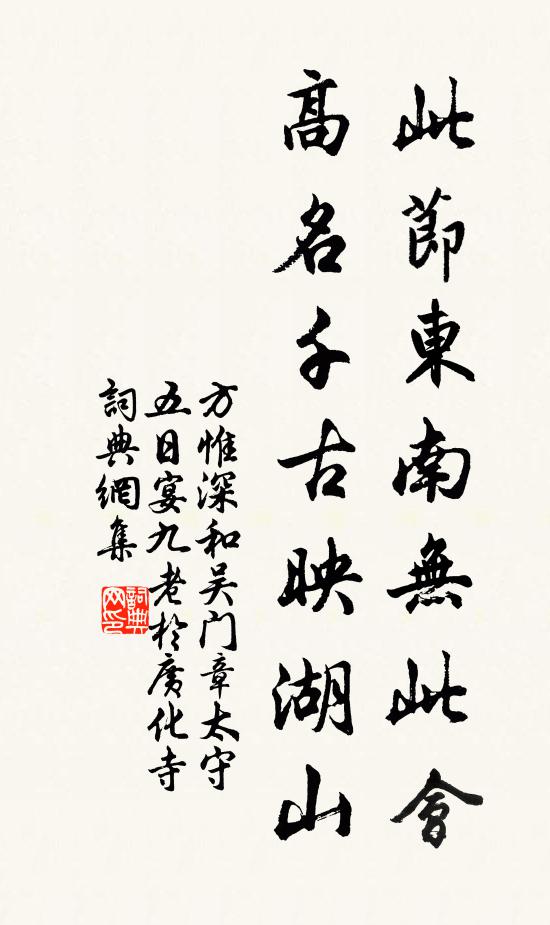 此節東南無此會
高名千古映湖山
方惟深和吴门章太守
五日宴九老於廣化寺
詞典網集
詞典
网印